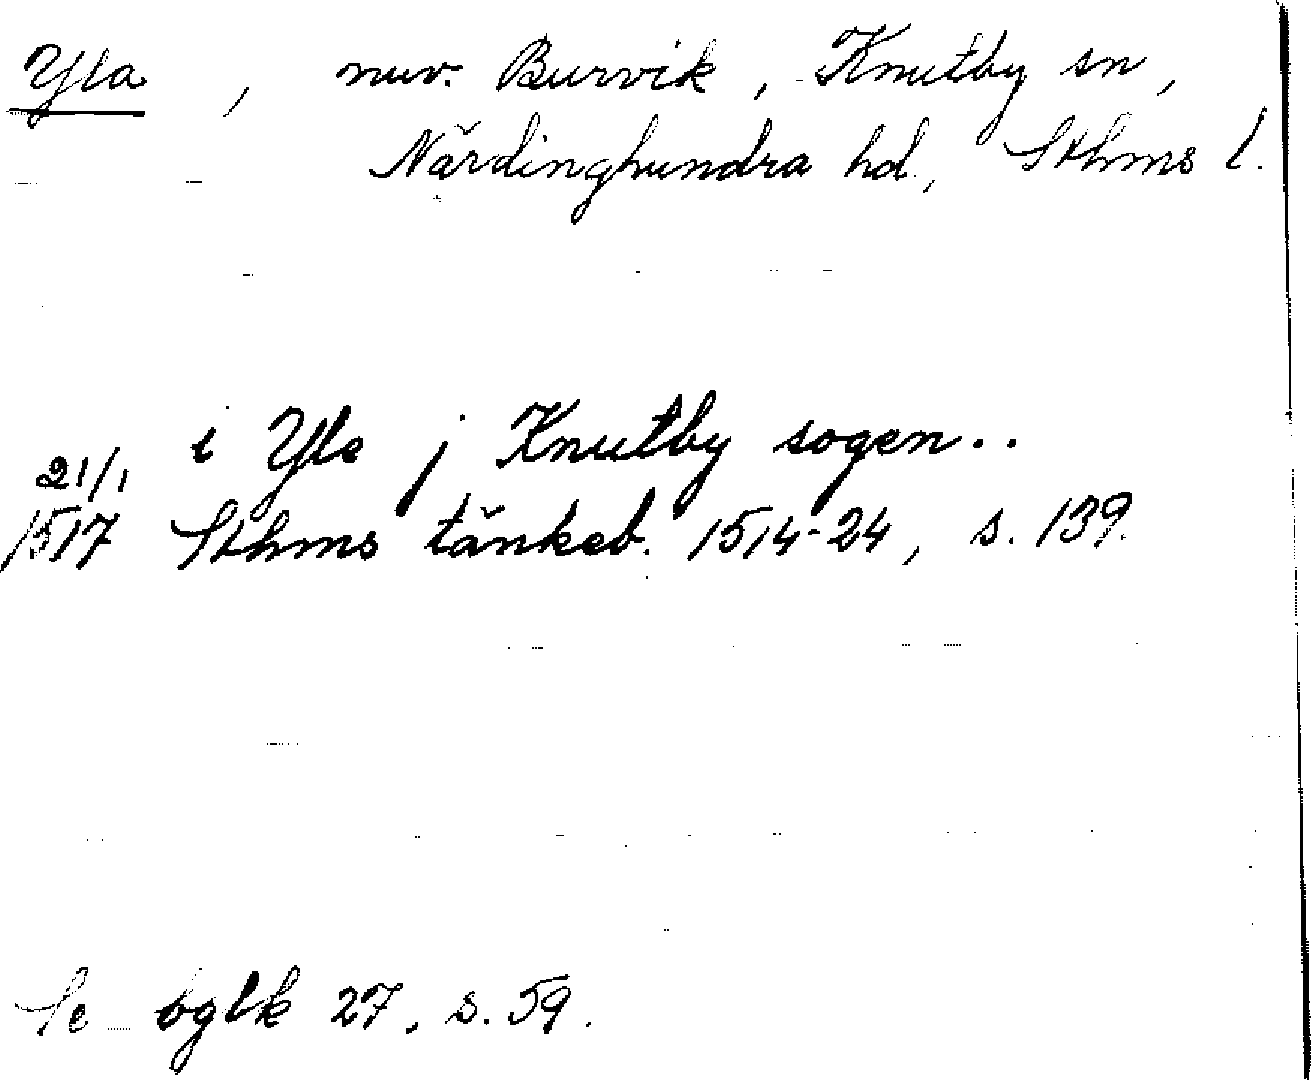 Yla, nuv. Burvik, Knutby sn,
Närdinghundra hd., Sthms l.
i Yle j Knutby sogen..
21/1
1517 Sthms tänkeb. 1514-24, s. 139.
Se bglk 27, s. 59.